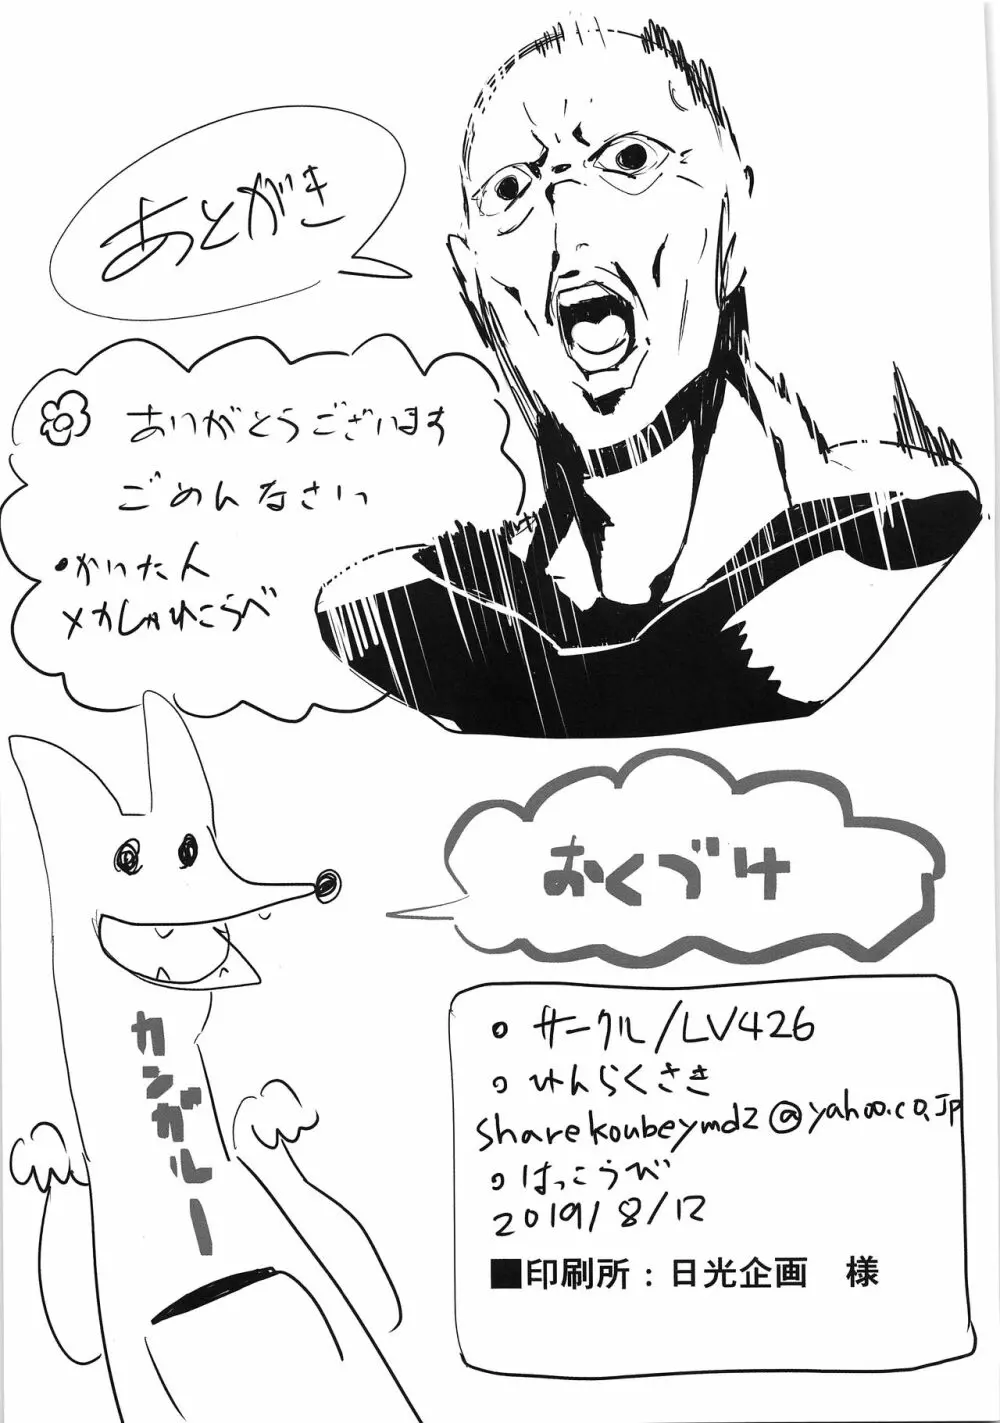 あとがき
ありがとうございます
ごめんなさいっ
・かいた人
メカしゃれこうべ
おくづけ
カンガルー
○サークル/LV426
○れんらくさき
sharekoubeymd2@yahoo.co.jp
○はっこうび
2019/8/12
■印刷所：日光企画　様